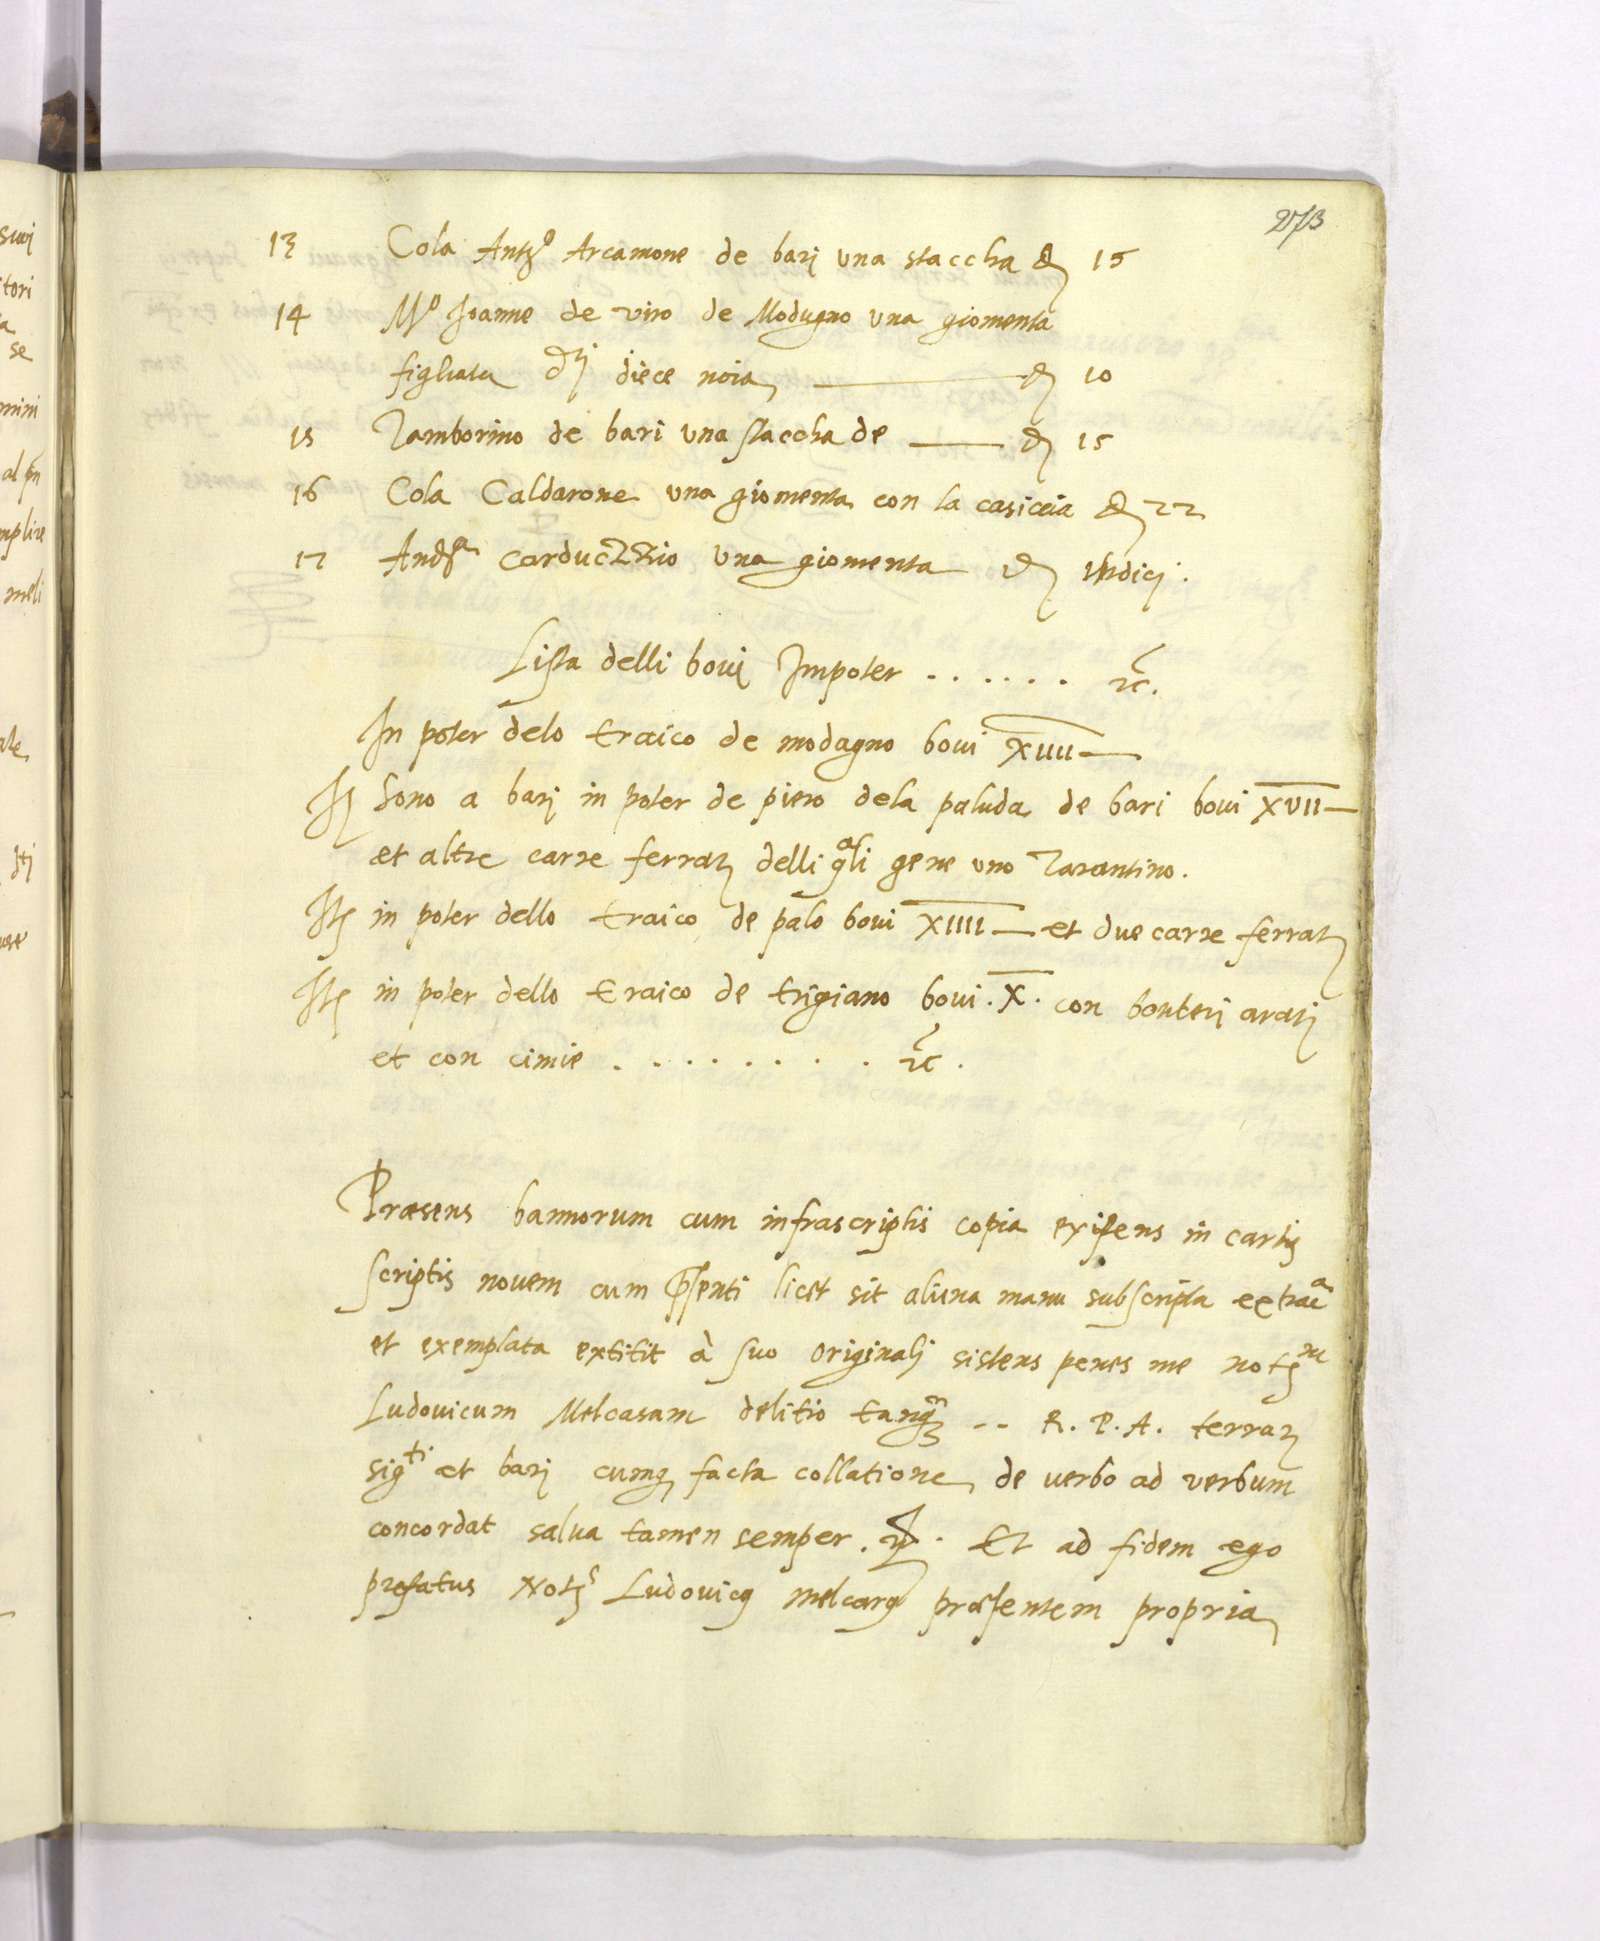 273
13 Cola Antº Arcamone de barj una staccha đ 15
14 Mº Joanne de viro de Modugno una giomenta
figliata dj diece noia đ 10
15 Tamborino de bari una staccha de đ 15
16 Cola Caldarone una giomenta con la casiccia đ 22
17 Andª una giomenta đ undicj.
Lista delli bovi Impoter ...... etc.
In poter delo traico de modagno bovi XIIII
It sono a barj in poter de piero dela paluda de bari bovi XVII
et altre carre ferrate delli qªli gene uno Tarantino.
Ite in poter dello traico de palo bovi XIIII et due carre ferrate
Ite in poter dello traico de trigiano bovi .X. con aratj
et con cimie ......... etc.
Præsens bannorum cum infrascriptis copia existens in cartis
scriptis novem cum p̄senti licet sit aliena manu subscripta extracª
et exemplata extitit à suo originalj sistens penes me notm
Ludovicum Melcasam delitio -- R. P. A. terrae
sigti et barj cumq facta collatione de verbo ad verbum
concordat salva tamen semper . Et ad fidem ego
prefatus Nots Ludovicus præsentem propria